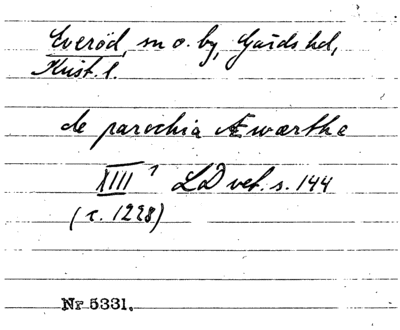 Everöd, sn o. by, Gärds hd,
Krist. l.
de parochia Æwærthe
XIII¹ LD vet. s. 144
(c. 1228)
Nr 5331.